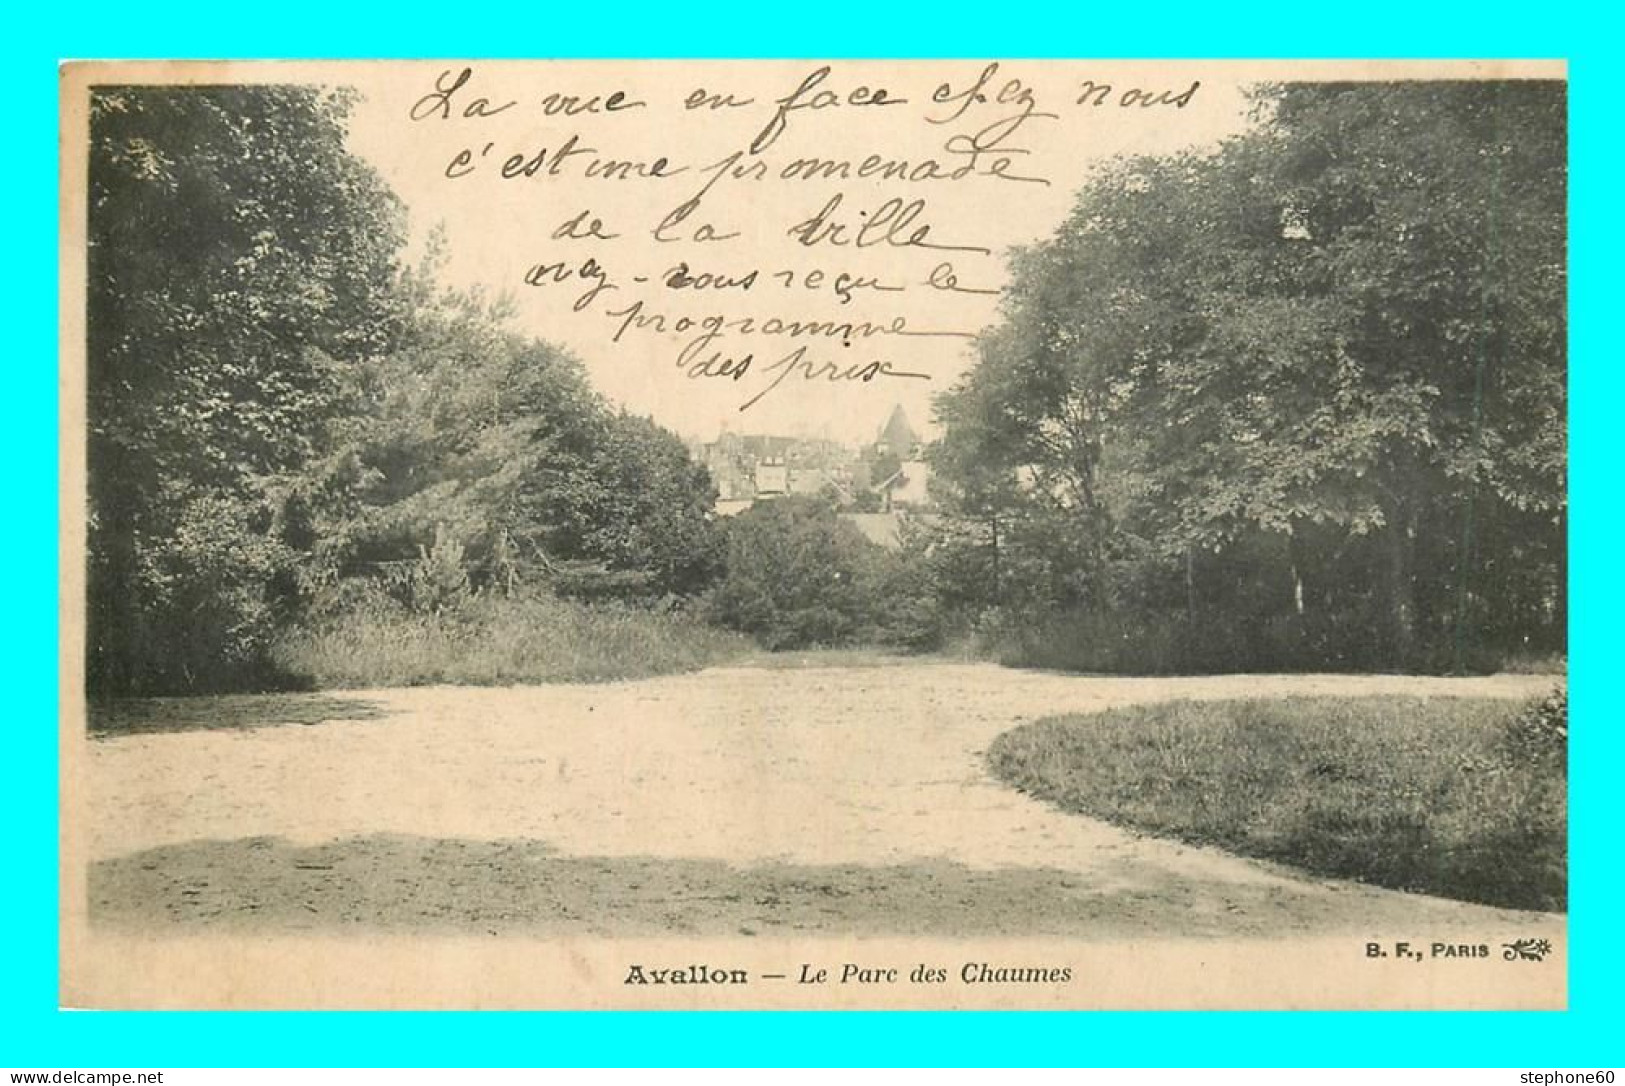 La vue en face chez nous
c'est une promenade
de la ville
avez-vous reçu le
programme
des prix
B. F., PARIS
Avallon — Le Parc des Chaumes
www.delcampe.net
stephone60